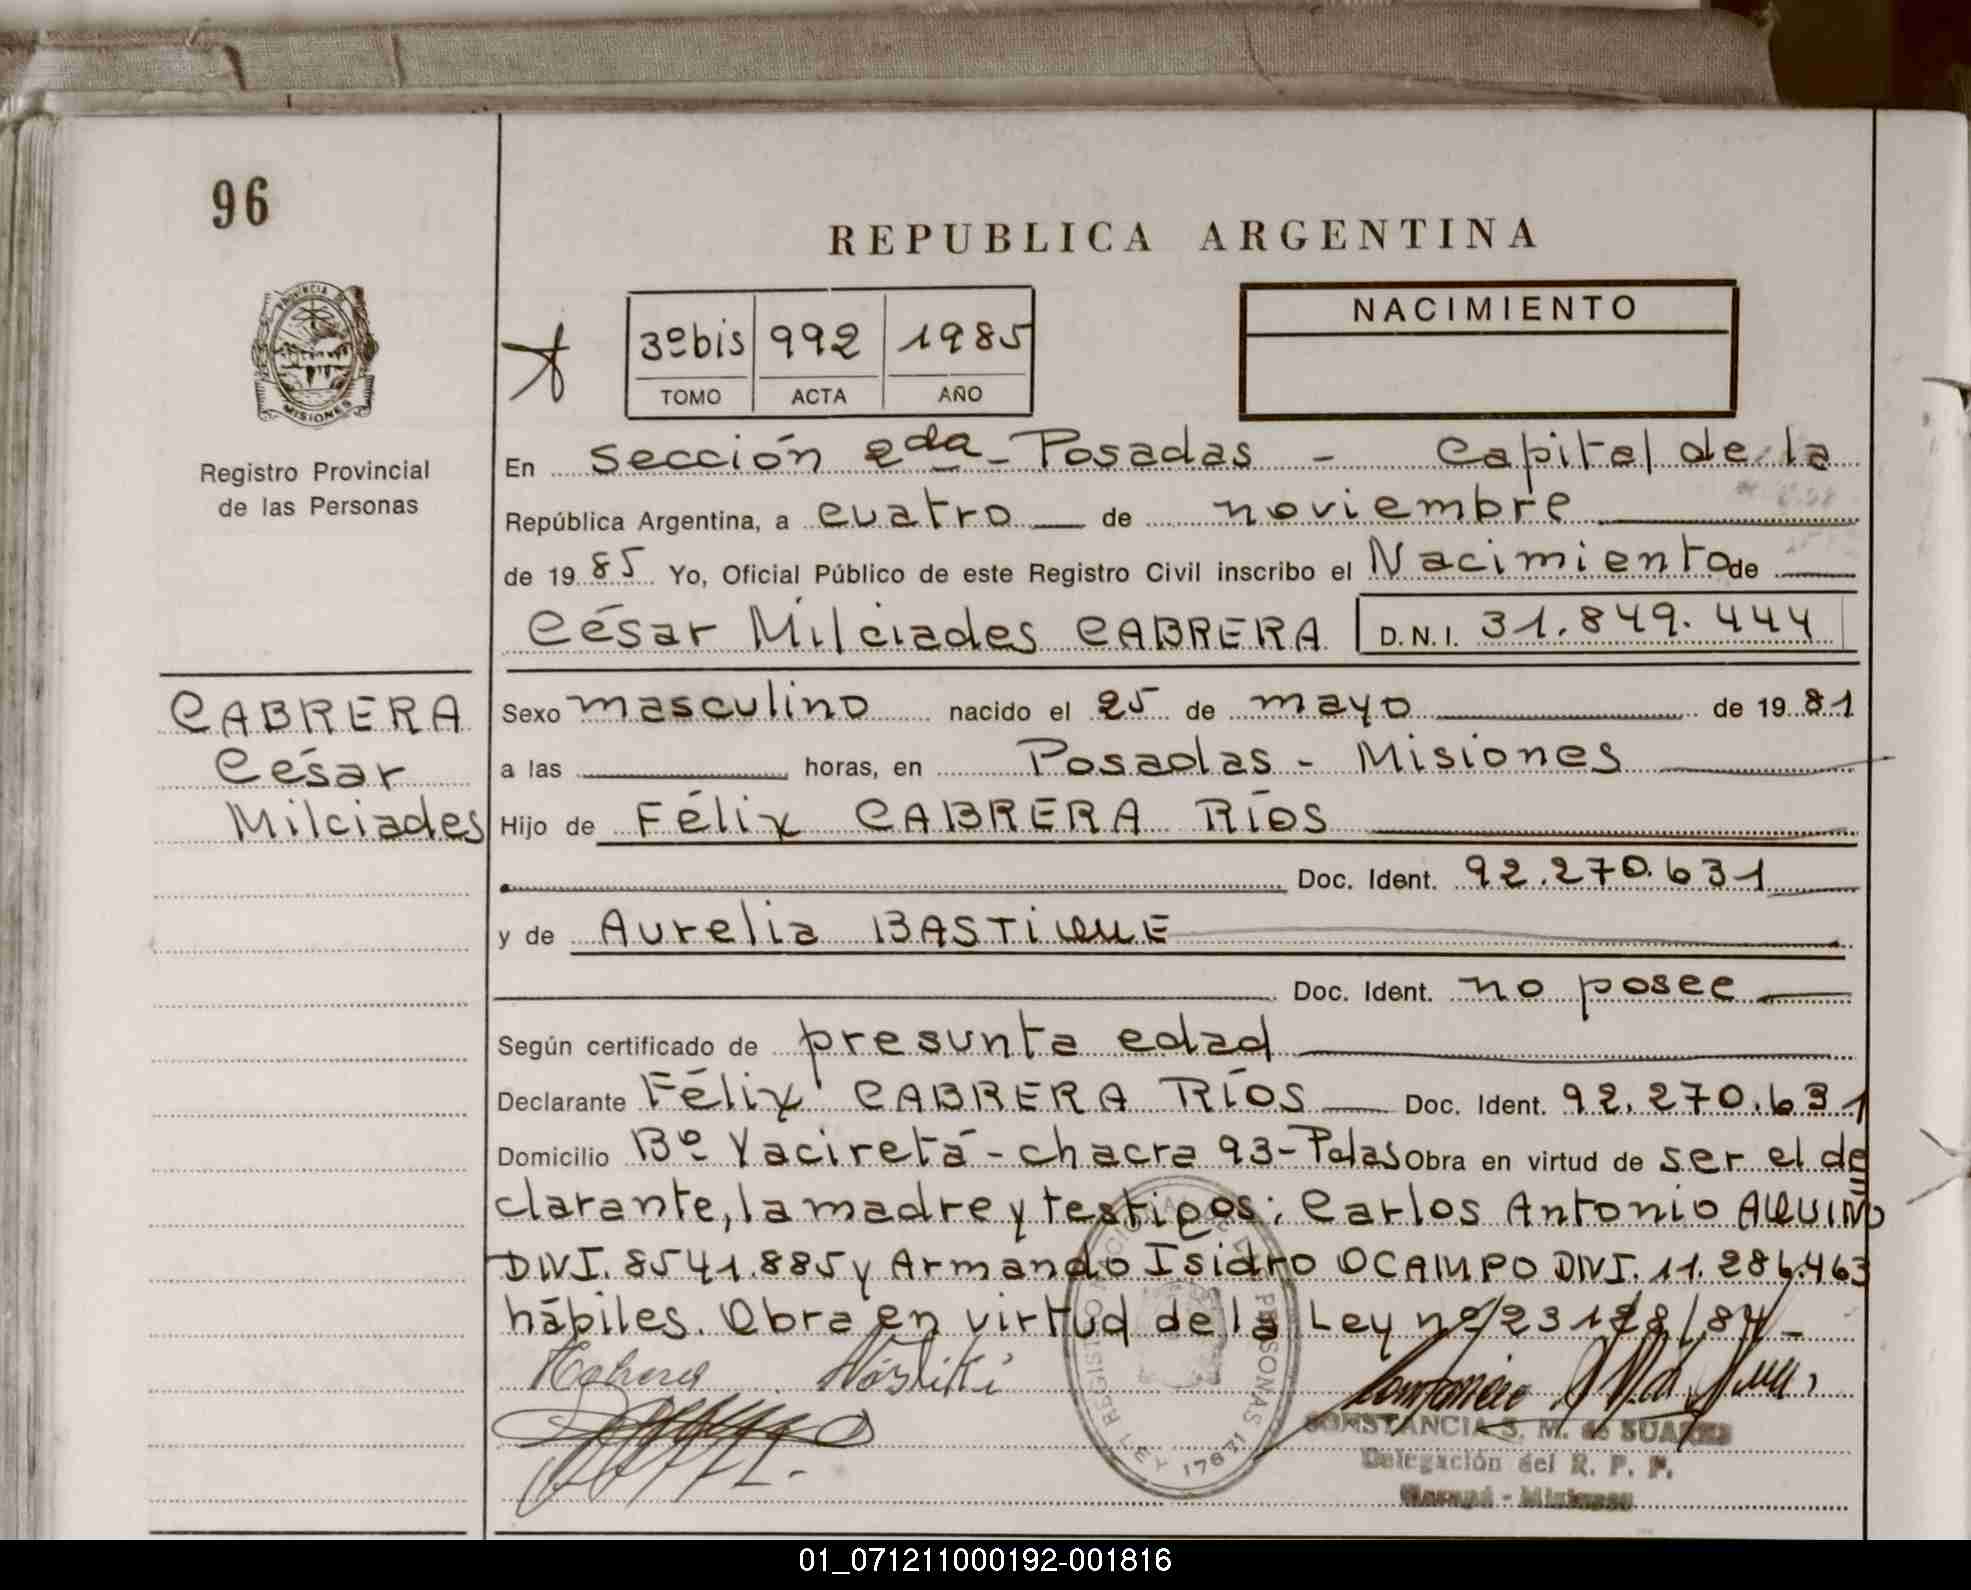 96
REPUBLICA ARGENTINA
PROVINCIA DE
MISIONES
3º bis 992 1985
TOMO ACTA AÑO
NACIMIENTO
Registro Provincial
de las Personas
En Sección 2da - Posadas - Capital de la
República Argentina, a cuatro de noviembre
de 1985 Yo, Oficial Público de este Registro Civil inscribo el Nacimiento de
César Milciades CABRERA D.N.I. 31.849.444
CABRERA
César
Milciades
Sexo masculino nacido el 25 de mayo de 1981
a las horas, en Posadas - Misiones
Hijo de Félix CABRERA RÍOS
Doc. Ident. 92.270.631
y de Aurelia BASTIQUE
Doc. Ident. no posee
Según certificado de presunta edad
Declarante Félix CABRERA RÍOS Doc. Ident. 92.270.631
Domicilio Bº Yaciretá - chacra 93 - Pdas Obra en virtud de ser el de
clarante, la madre y testigos: Carlos Antonio AQUINO
DNI. 8541.885 y Armando Isidro OCAMPO DNI. 11.286.463
hábiles. Obra en virtud de la Ley nº 23128/84 -
CONSTANCIA S. M. de SUAREZ
Delegación del R. P. P.
LEY 17671
01_071211000192-001816